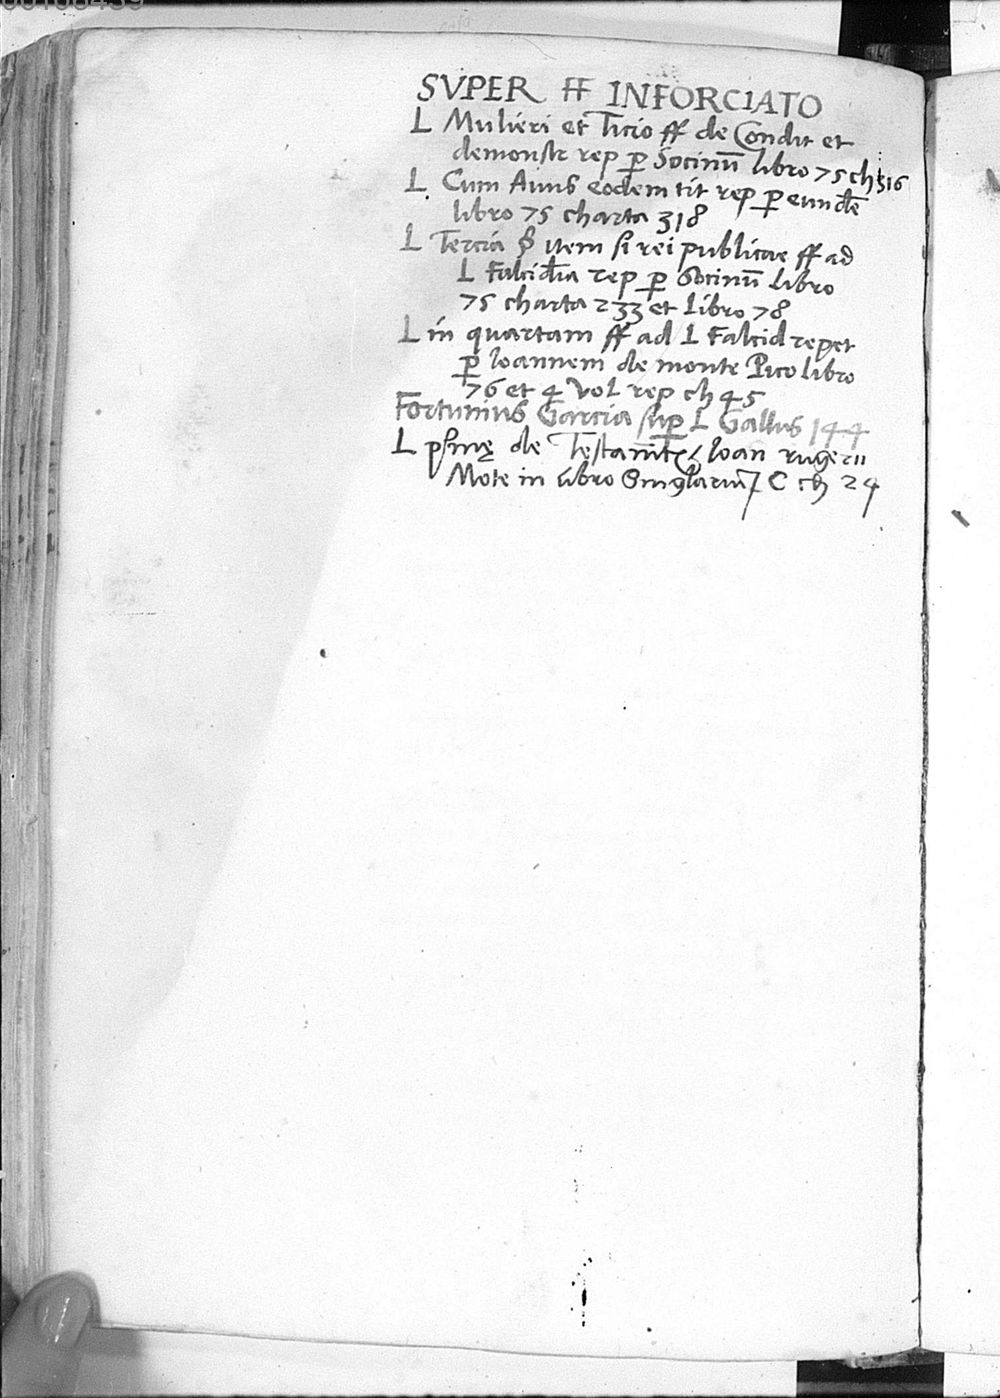 SVPER ff INFORCIATO
L Mulieri et Ticio ff de Condit et
demonstr rep p̱ Socinū libro 75 ch 316
L Cum Auus eodem tit rep p̱ eundē
libro 75 charta 318
L Tercia § item si rei publicae ff ad
L Falcidia rep p̱ Socinū libro
75 charta 233 et Libro 78
L in quartam ff ad L Falcid repet
p̱ Ioannem de monte Pico libro
76 et 4 Vol rep ch 45
Fortunius Garcia sup̱ L Gallus 144
L de Ioan rugerii
Mote in libro C ch 24